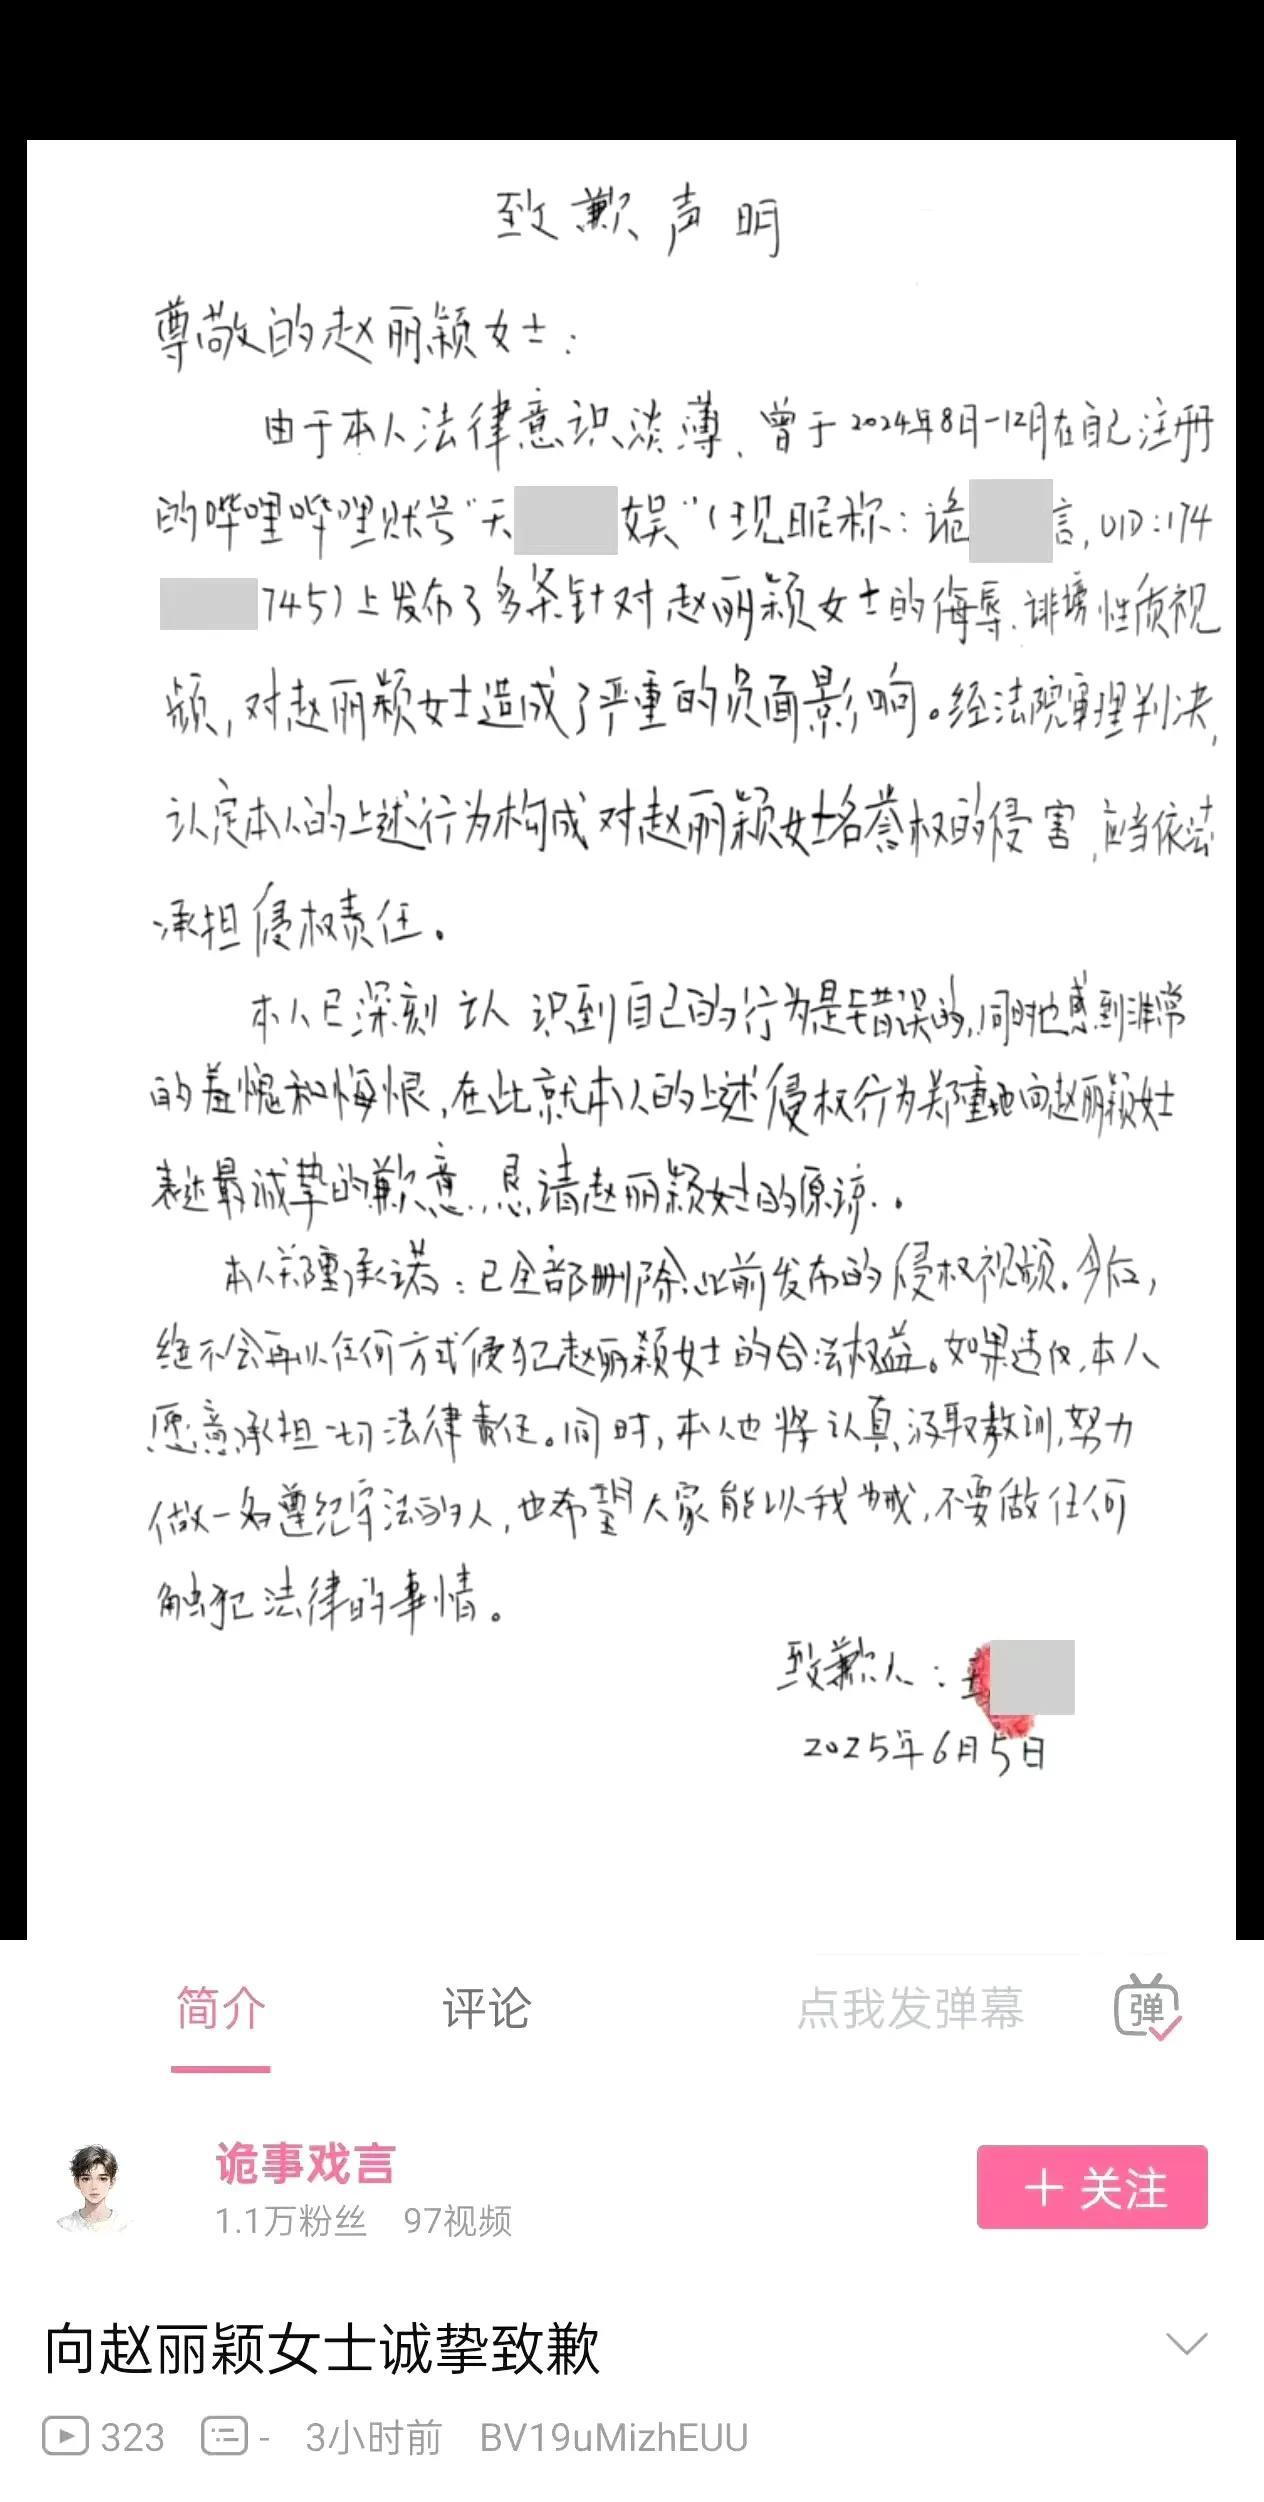 致歉声明
尊敬的赵丽颖女士：
由于本人法律意识淡薄、曾于2024年8月-12月在自己注册
的哔哩哔哩账号"天 娱"（现昵称：诡 言，UID：174
745）上发布了多条针对赵丽颖女士的侮辱、诽谤性质视
频，对赵丽颖女士造成了严重的负面影响。经法院审理判决，
认定本人的上述行为构成对赵丽颖女士名誉权的侵害，应当依法
承担侵权责任。
本人已深刻认识到自己的行为是错误的，同时也感到非常
的羞愧和悔恨，在此就本人的上述侵权行为郑重地向赵丽颖女士
表达最诚挚的歉意，恳请赵丽颖女士的原谅。
本人郑重承诺：已全部删除此前发布的侵权视频。今后，
绝不会再以任何方式侵犯赵丽颖女士的合法权益。如果违反，本人
愿意承担一切法律责任。同时，本人也将认真汲取教训，努力
做一名遵纪守法的人，也希望大家能以我为戒，不要做任何
触犯法律的事情。
致歉人：
2025年6月5日
简介 评论 点我发弹幕 弹
诡事戏言
1.1万粉丝 97视频
＋关注
向赵丽颖女士诚挚致歉
323 - 3小时前 BV19uMizhEUU